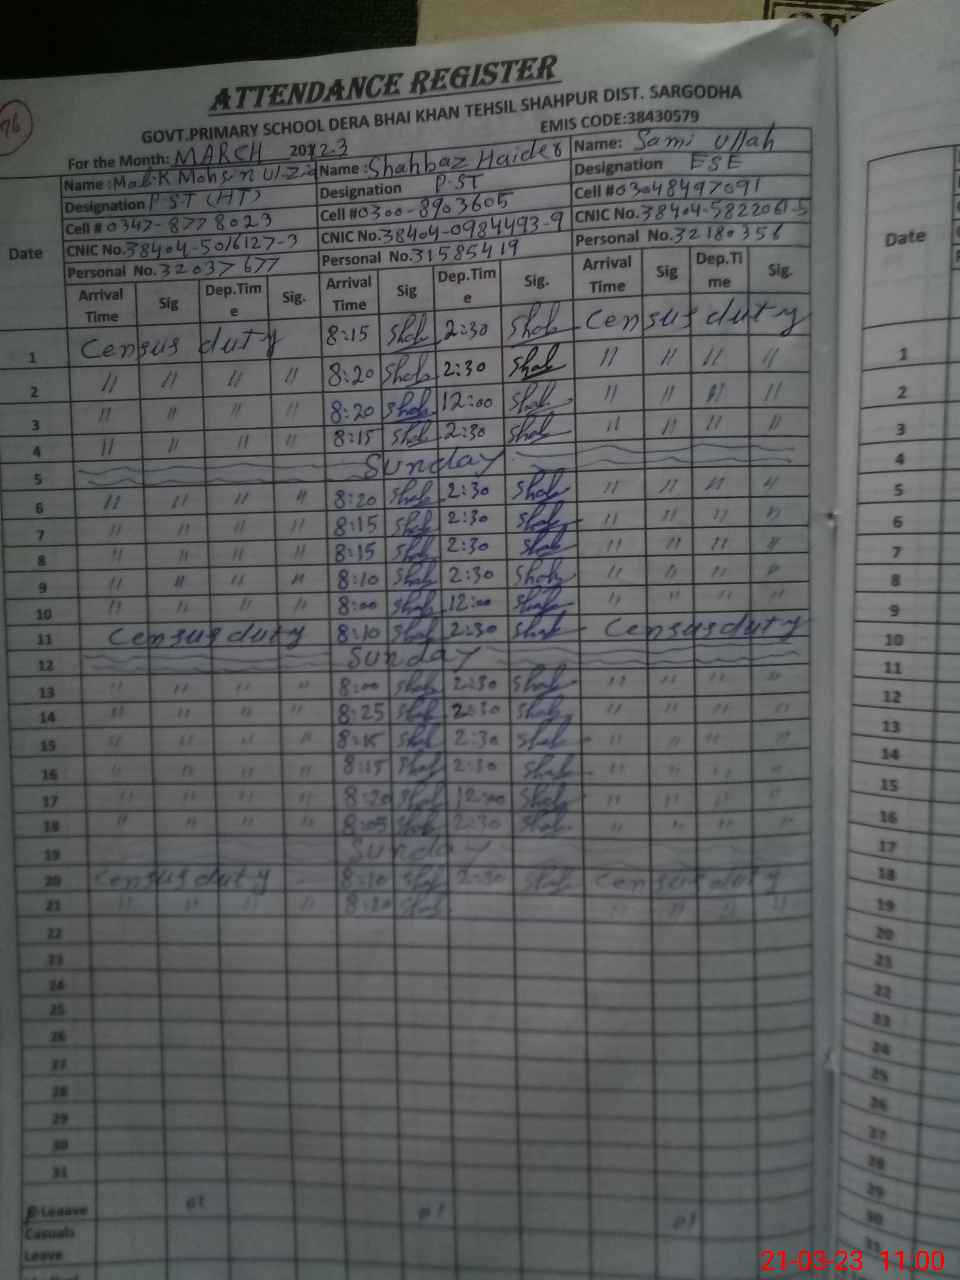 76
ATTENDANCE REGISTER
GOVT.PRIMARY SCHOOL DERA BHAI KHAN TEHSIL SHAHPUR DIST. SARGODHA
EMIS CODE:38430579
For the Month: MARCH 2023
Name: Malik Mohsin Ul-Zia Name: Shahbaz Haider Name: Sami Ullah
Designation PST (HT) Designation P-ST Designation ESE
Cell # 0347-8778023 Cell #0300-8903605 Cell #03048497091
CNIC No.38404-5016127-3 CNIC No.38404-0984493-9 CNIC No.38404-5822061-5
Personal No.32037677 Personal No.31585419 Personal No.32180356
Date Arrival Time Sig Dep.Time Sig. Arrival Time Sig Dep.Time Sig. Arrival Time Sig Dep.Time Sig. Date
1 Census duty 8:15 Shah 2:30 Shah Census duty 1
2 " " " " 8:20 Shah 2:30 Shah " " " " 2
3 " " " " 8:20 Shah 12:00 Shah " " " " 3
4 " " " " 8:15 Shah 2:30 Shah " " " " 4
5 Sunday 5
6 " " " " 8:20 Shah 2:30 Shah " " " " 6
7 " " " " 8:15 Shah 2:30 Shah " " " " 7
8 " " " " 8:15 Shah 2:30 Shah " " " " 8
9 " " " " 8:10 Shah 2:30 Shah " " " " 9
10 " " " " 8:00 Shah 12:00 Shah " " " " 10
11 Census duty 8:10 Shah 2:30 Shah Census duty 11
12 Sunday 12
13 " " " " 8:00 Shah 2:30 Shah " " " " 13
14 " " " " 8:25 Shah 2:30 Shah " " " " 14
15 " " " " 8:15 Shah 2:30 Shah " " " " 15
16 " " " " 8:15 Shah 2:30 Shah " " " " 16
17 " " " " 8:20 Shah 12:00 Shah " " " " 17
18 " " " " 8:05 Shah 2:30 Shah " " " " 18
19 Sunday 19
20 Census duty 8:10 Shah 2:30 Shah Census duty 20
21 " " " " 8:20 Shah " " " " 21
22 22
23 23
24 24
25 25
26 26
27 27
28 28
29 29
30 30
31 31
Leaave 01 01 01
Casuals
Leave
21-03-23 11.00